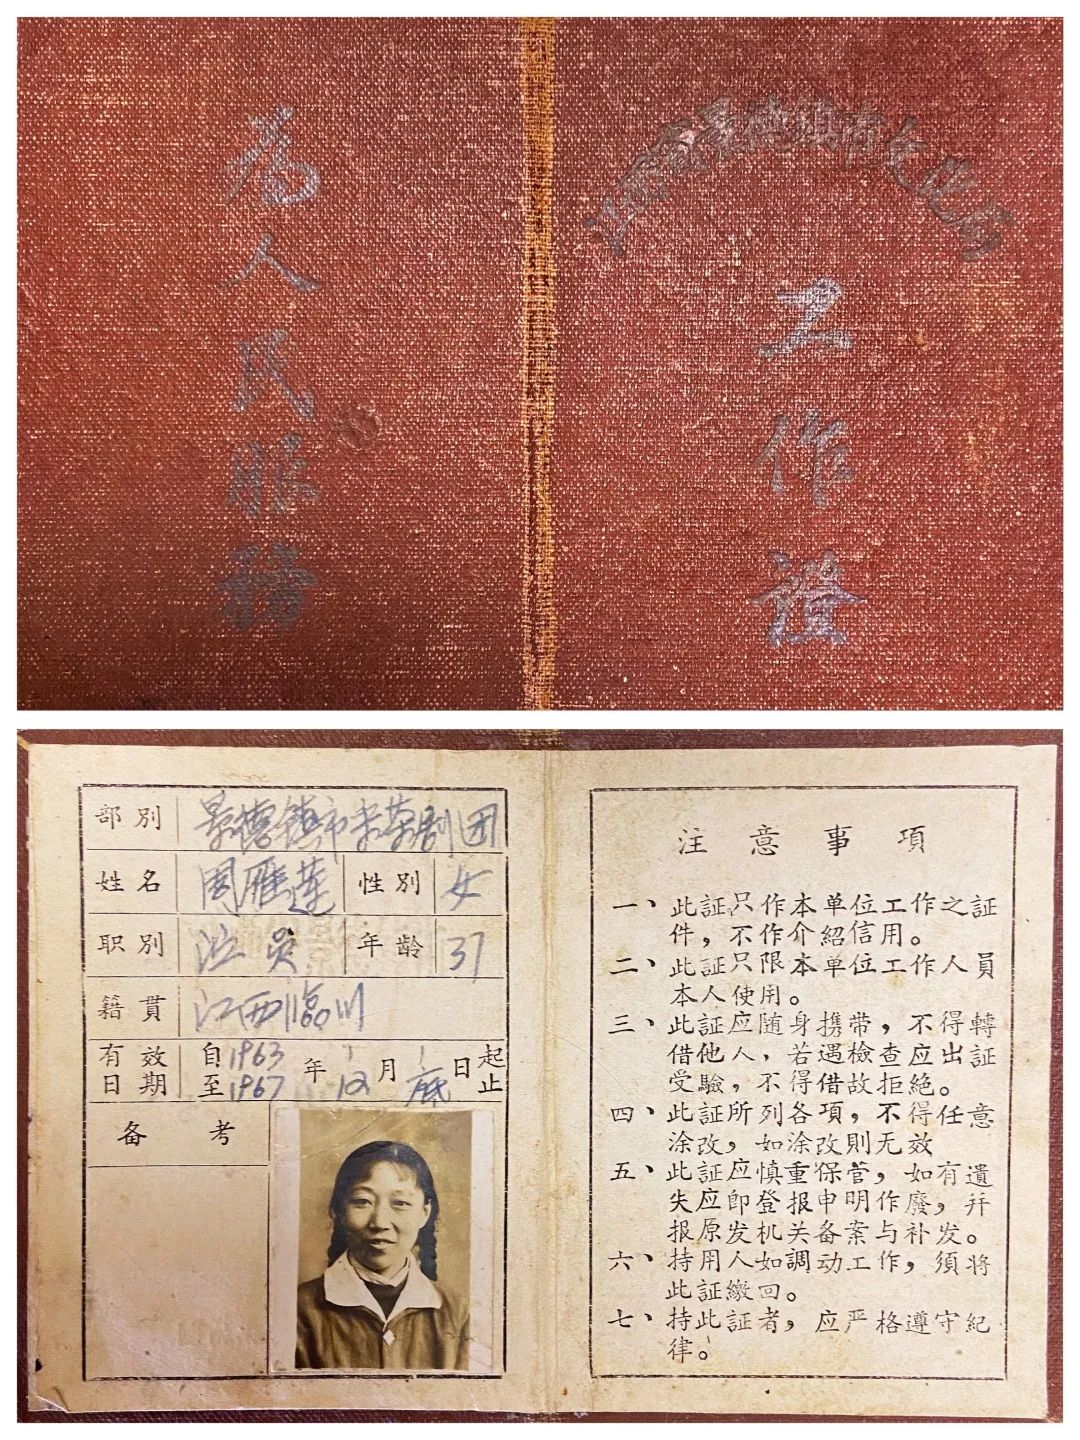 为人民服務
江西省景德镇市文化局
工作證
部別 景德镇市采茶剧团
姓名 周雁莲 性別 女
职別 演员 年龄 37
籍貫 江西临川
有效日期 自1963年1月1日起
至1967 12 底止
备考
注意事項
一、此証只作本单位工作之証
件，不作介紹信用。
二、此証只限本单位工作人員
本人使用。
三、此証应随身携带，不得轉
借他人，若遇檢查应出証
受驗，不得借故拒絶。
四、此証所列各項，不得任意
涂改，如涂改則无效
五、此証应慎重保管，如有遺
失应即登报申明作廢，幷
报原发机关备案与补发。
六、持用人如調动工作，須将
此証繳回。
七、持此証者，应严格遵守紀
律。